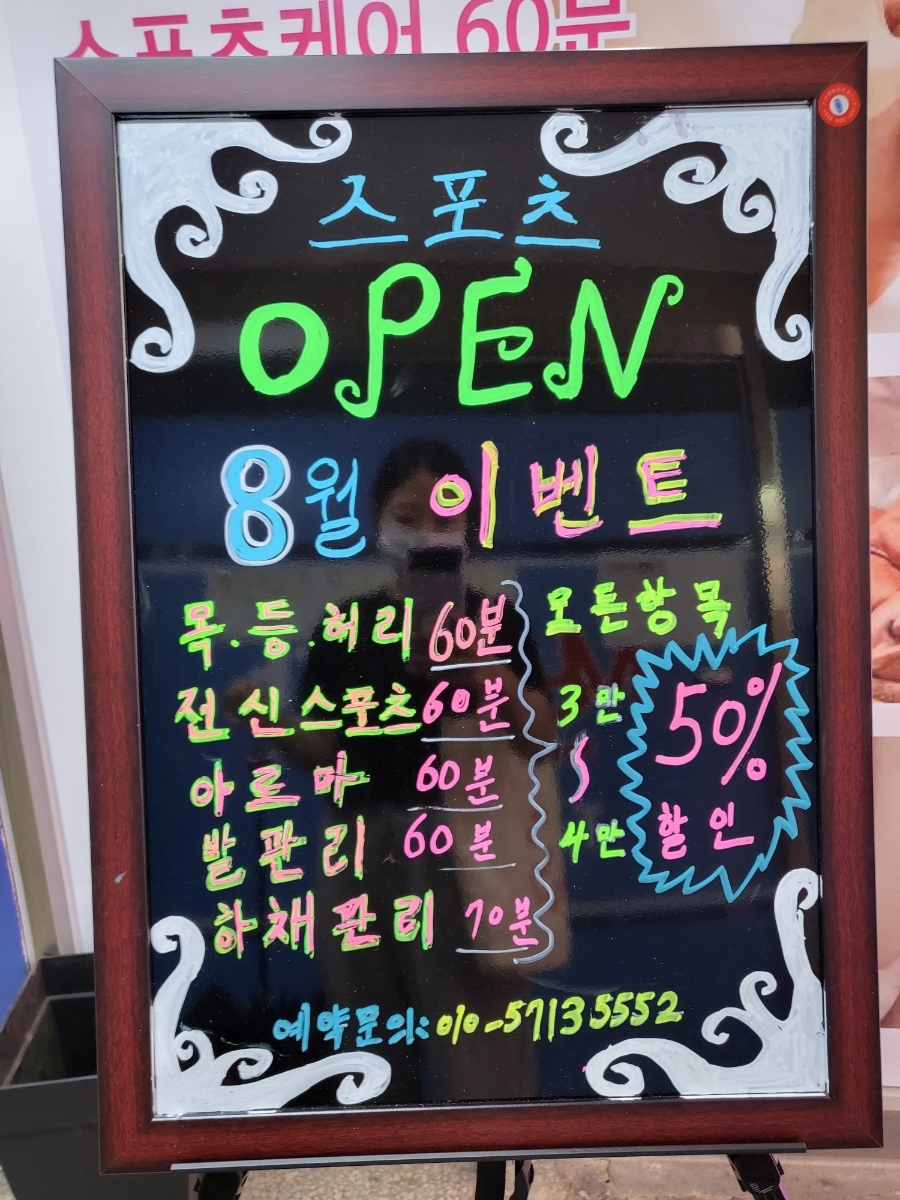 스포츠케어 60분
스포츠
OPEN
8월 이벤트
목.등.허리 60분
전신스포츠 60분
아로마 60분
발관리 60분
하채관리 70분
모든항목
3만
~
4만
50%
할인
예약문의: 010-57135552